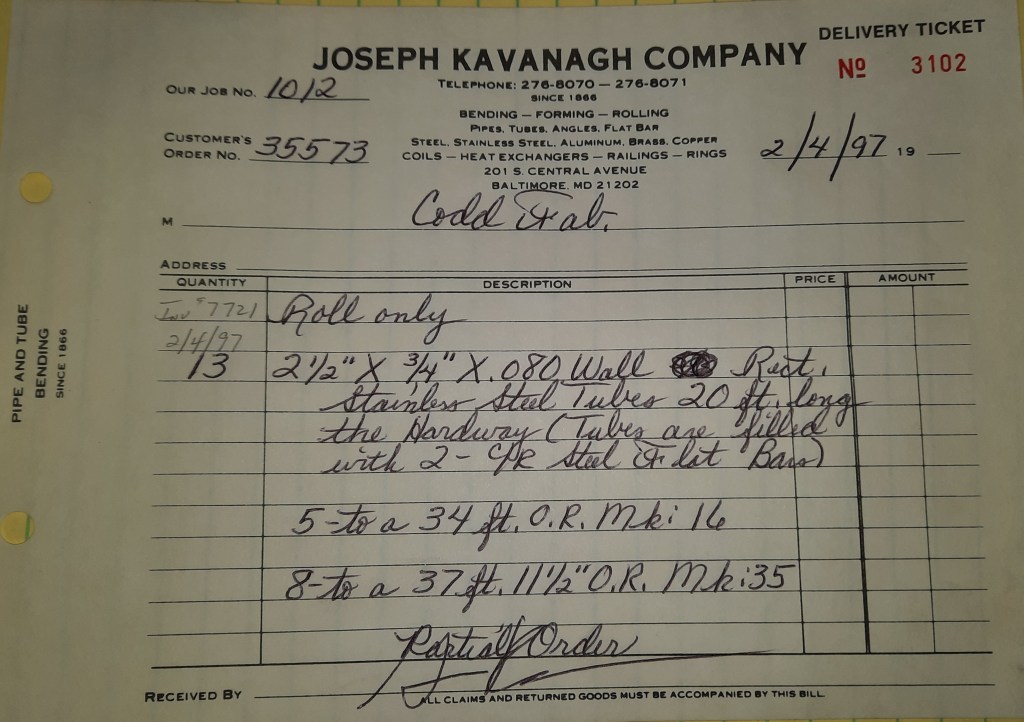 DELIVERY TICKET
JOSEPH KAVANAGH COMPANY
Nº 3102
TELEPHONE: 276-8070 — 276-8071
SINCE 1866
OUR JOB NO. 1012
BENDING — FORMING — ROLLING
PIPES, TUBES, ANGLES, FLAT BAR
STEEL, STAINLESS STEEL, ALUMINUM, BRASS, COPPER
COILS — HEAT EXCHANGERS — RAILINGS — RINGS
201 S. CENTRAL AVENUE
BALTIMORE, MD 21202
CUSTOMER'S
ORDER NO. 35573
2/4/97 19
M Codd Fab.
ADDRESS
QUANTITY DESCRIPTION PRICE AMOUNT
Inv # 7721 Roll only
2/4/97
13 2 1/2" X 3/4" X .080 Wall Rect.
Stainless Steel Tubes 20 ft. long
the Hardway (Tubes are filled
with 2- Steel Flat Bars)
5-to a 34 ft. O.R. Mk: 16
8-to a 37 ft. 11 1/2" O.R. Mk: 35
Partial Order
RECEIVED BY
ALL CLAIMS AND RETURNED GOODS MUST BE ACCOMPANIED BY THIS BILL.
PIPE AND TUBE
BENDING
SINCE 1866